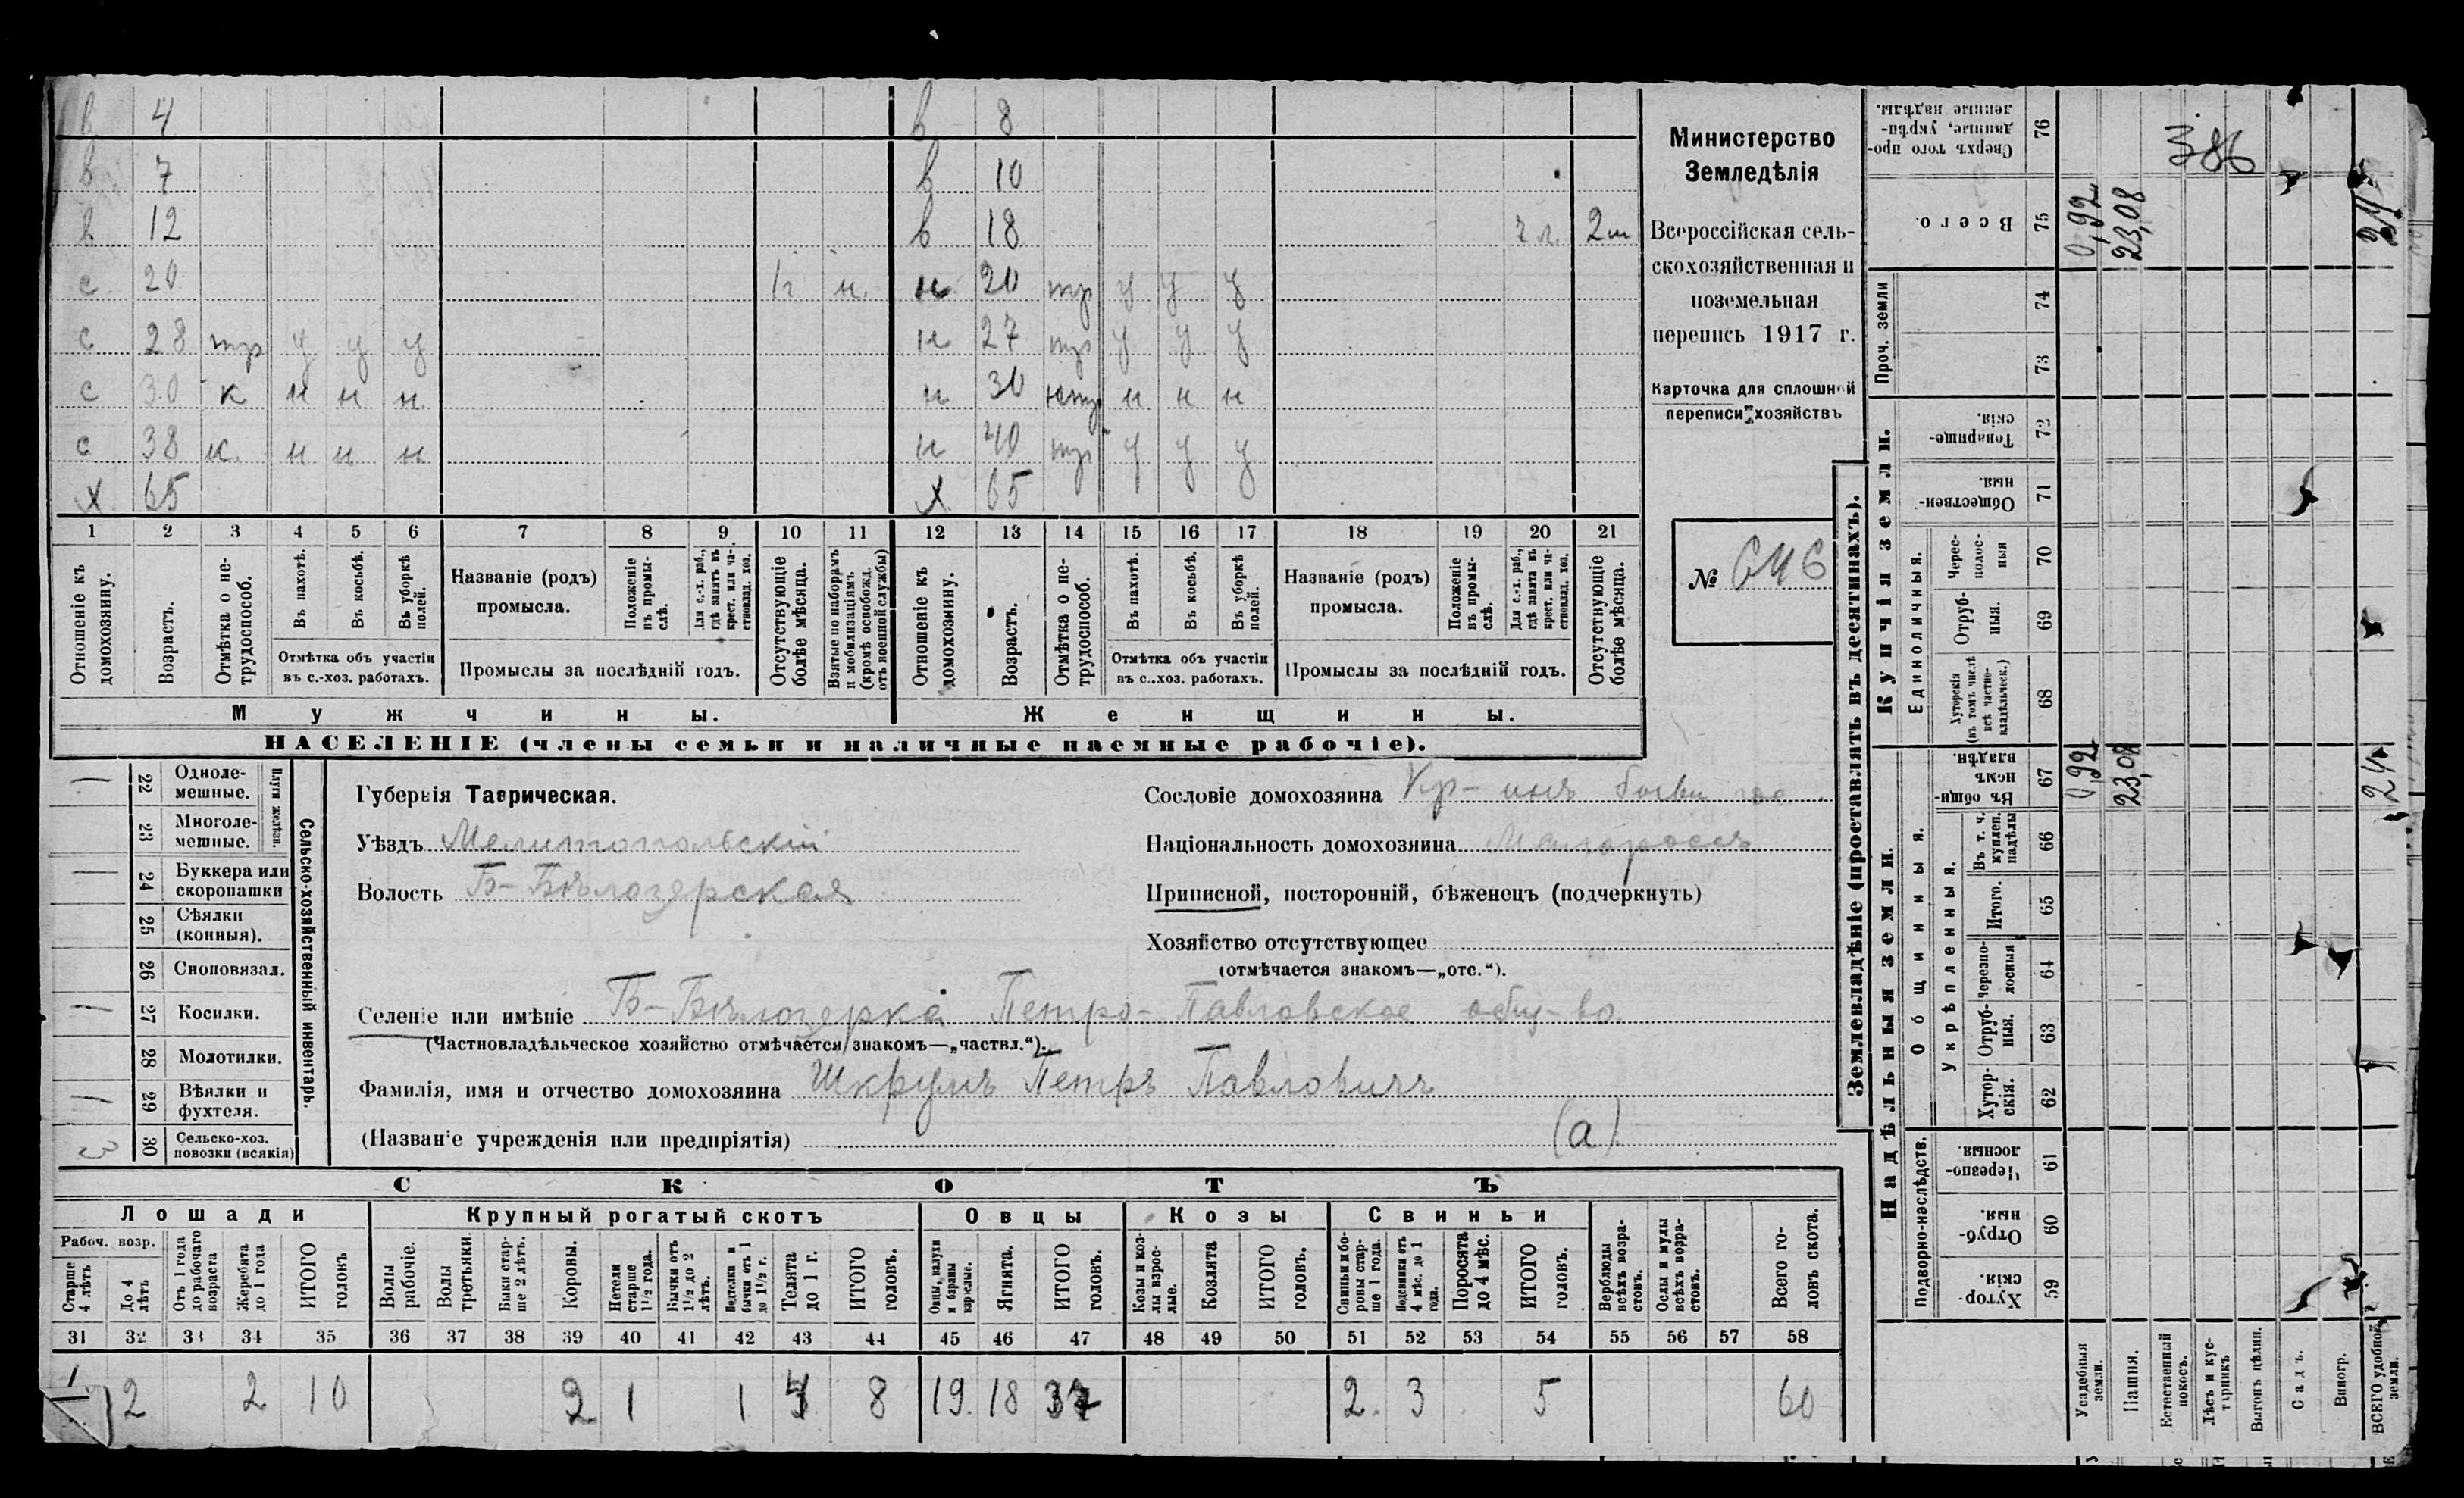 в 4 в 8
в 7 в 10
в 12 в 18 2 ш
с 20 1 г. н. н 20 тр у у у
с 28 тр у у у н 27 тр у у у
с 30 к н н н н 30 нтр н н н
с 38 к. н н н н 40 тр у у у
х 65 х 65
1 2 3 4 5 6 7 8 9 10 11 12 13 14 15 16 17 18 19 20 21
Отношеніе къ домохозяину.
Возрастъ.
Отмѣтка о не-
трудоспособ.
Въ пахотѣ.
Въ косьбѣ.
Въ уборкѣ полей.
Отмѣтка объ участіи
въ с.-хоз. работахъ.
Названіе (родъ)
промысла.
Положеніе въ промы-
слѣ.
Для с.-х. раб., гдѣ занятъ въ крест. или ча-
стновлад. хоз.
Промыслы за послѣдній годъ.
Отсутствующіе болѣе мѣсяца.
Взятые по наборамъ и мобилизаціямъ (кромѣ освобожд. отъ военной службы)
Отношеніе къ домохозяину.
Возрастъ.
Отмѣтка о не-
трудоспособ.
Въ пахотѣ.
Въ косьбѣ.
Въ уборкѣ полей.
Отмѣтка объ участіи
въ с.-хоз. работахъ.
Названіе (родъ)
промысла.
Положеніе въ промы-
слѣ.
Для с.-х. раб., гдѣ занята въ крест. или ча-
стновлад. хоз.
Промыслы за послѣдній годъ.
Отсутствующіе болѣе мѣсяца.
Мужчины. Женщины.
НАСЕЛЕНІЕ (члены семьи и наличные наемные рабочіе).
Министерство
Земледѣлія
Всероссійская сель-
скохозяйственная и
поземельная
перепись 1917 г.
Карточка для сплошной
переписи хозяйствъ
№ 646
Сельско-хозяйственный инвентарь.
Плуги желѣзн.
22 Одноле-
мешные.
23 Многоле-
мешные.
24 Буккера или
скоропашки
25 Сѣялки
(конныя).
26 Сноповязал.
27 Косилки.
28 Молотилки.
29 Вѣялки и
фухтеля.
3 30 Сельско-хоз.
повозки (всякія)
Губернія Таврическая.
Уѣздъ Мелитопольскій
Волость Б-Бѣлозерская
Сословіе домохозяина Кр-инъ
Національность домохозяина Малороссъ
Приписной, посторонній, бѣженецъ (подчеркнуть)
Хозяйство отсутствующее
(отмѣчается знакомъ—„отс.“).
Селеніе или имѣніе Б-Бѣлозерка Петро-Павловское общ-во.
(Частновладѣльческое хозяйство отмѣчается знакомъ—„частвл.“).
Фамилія, имя и отчество домохозяина Шкрумъ Петръ Павловичъ
(Названіе учрежденія или предпріятія) (а)
СКОТЪ
Лошади Крупный рогатый скотъ Овцы Козы Свиньи
Рабоч. возр.
Старше 4 лѣтъ
До 4 лѣтъ
Отъ 1 года до рабочаго возраста
Жеребята до 1 года
ИТОГО головъ
Волы рабочіе.
Волы третьяки.
Быки стар-
ше 2 лѣтъ.
Коровы.
Нетели старше 1½ года.
Бычки отъ 1½ до 2 лѣтъ.
Подтелки и бычки отъ 1 до 1½ г.
Телята до 1 г.
ИТОГО головъ.
Овцы, валухи и бараны взрослые.
Ягнята.
ИТОГО головъ.
Козы и коз-
лы взрос-
лые.
Козлята
ИТОГО головъ.
Свиньи и бо-
ровы стар-
ше 1 года.
Подсвинки отъ 4 мѣс. до 1 года.
Поросята до 4 мѣс.
ИТОГО головъ.
Верблюды всѣхъ возра-
стовъ.
Ослы и мулы всѣхъ возра-
стовъ.
Всего го-
ловъ скота.
31 32 33 34 35 36 37 38 39 40 41 42 43 44 45 46 47 48 49 50 51 52 53 54 55 56 57 58
2 2 10 2 1 1 8 19. 18 37 2. 3 5 60
Землевладѣніе (проставлять въ десятинахъ).
Надѣльныя земли. Купчія земли. Проч. земли
Подворно-наслѣдств. Общинныя. Укрѣпленныя. Единоличныя.
59 Хутор-
скія.
60 Отруб-
ныя.
61 Черезпо-
лосныя.
62 Хутор-
скія.
63 Отруб-
ныя.
64 Черезпо-
лосныя
65 Итого.
66 Въ т. ч. куплен. надѣлы
67 Въ общи-
номъ владѣн.
68 Хуторскія (въ томъ числѣ всѣ частно-
владѣльческ.)
69 Отруб-
ныя.
70 Черес-
полос-
ныя
71 Обществен-
ныя.
72 Товарище-
скія.
73
74
75 Всего.
76 Сверхъ того про-
данные, укрѣп-
ленные надѣлы.
Усадебныя земли. 0,92 0,92
Пашня. 23,08 23,08
Естественный покосъ.
Лѣсъ и кус-
тарникъ
Выгонъ цѣлин.
Садъ.
Виногр.
ВСЕГО удобной земли. 24 24
386